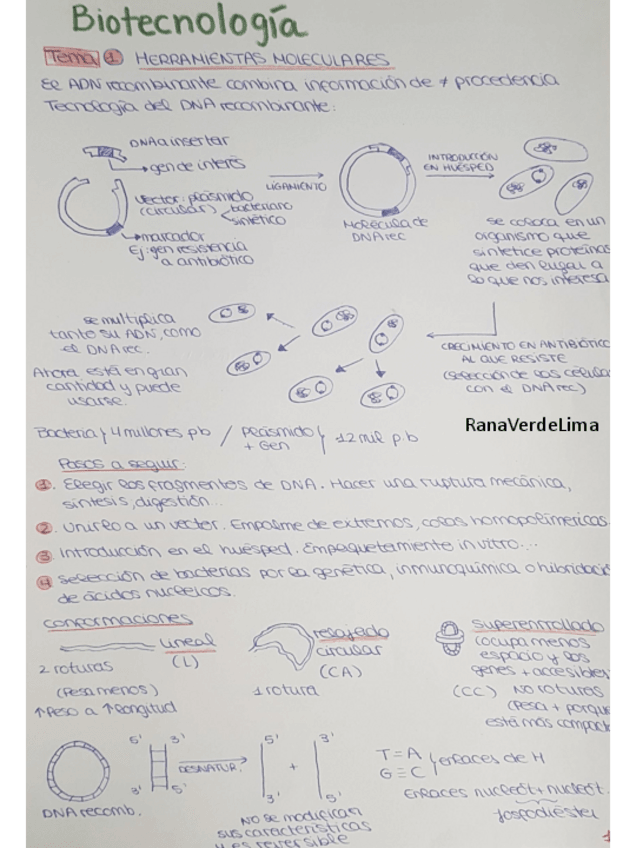 Biotecnología
Tema 1 HERRAMIENTAS MOLECULARES
El ADN recombinante combina información de ≠ procedencia
Tecnología del DNA recombinante:
DNA a insertar
gen de interés
vector: plásmido
(circular) bacteriano
sintético
marcador
Ej: gen resistencia
a antibiótico
LIGAMIENTO
Molécula de
DNA rec
INTRODUCCIÓN
EN HUÉSPED
se coloca en un
organismo que
sintetice proteínas
que den lugar a
lo que nos interesa
CRECIMIENTO EN ANTIBIÓTICO
AL QUE RESISTE
(selección de las células
con el DNA rec)
se multiplica
tanto su ADN, como
el DNA rec.
Ahora está en gran
cantidad y puede
usarse.
Bacteria } 4 millones pb / Plásmido + Gen } 12 mil p.b
RanaVerdeLima
Pasos a seguir:
1. Elegir los fragmentos de DNA. Hacer una ruptura mecánica,
síntesis, digestión...
2. Unirlo a un vector. Empalme de extremos, colas homopoliméricas.
3 Introducción en el huésped. Empaquetamiento in vitro...
4 selección de bacterias por la genética, inmunoquímica o hibridació
de ácidos nucleicos.
conformaciones
lineal
(L)
2 roturas
(Pesa menos)
↑Peso a ↑longitud
relajado
circular
(CA)
1 rotura
superenrrollado
(ocupa menos
espacio y los
genes + accesibles)
(CC) NO roturas
(Pesa + porque
está más compacto
5' 3'
3' 5'
DNA recomb.
DESNATUR.
5' 3'
+
3' 5'
No se modifican
sus características
y es reversible
T=A
G≡C } enlaces de H
Enlaces nucleót + nucleót.
fosfodiéster
1